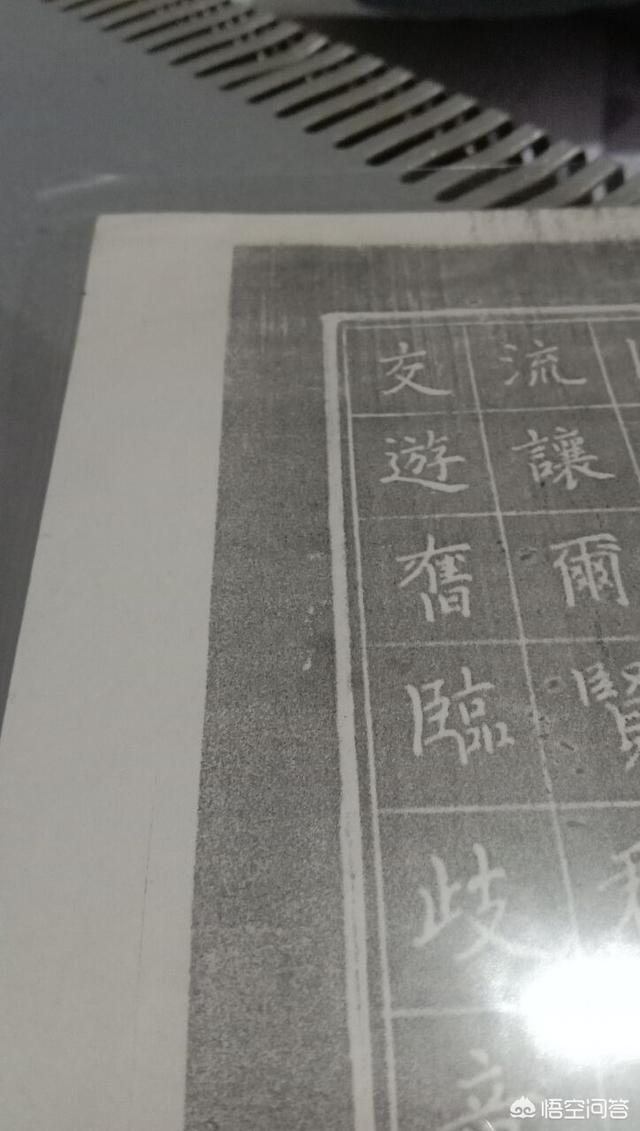 流讓爾賢
交遊舊臨歧
悟空问答